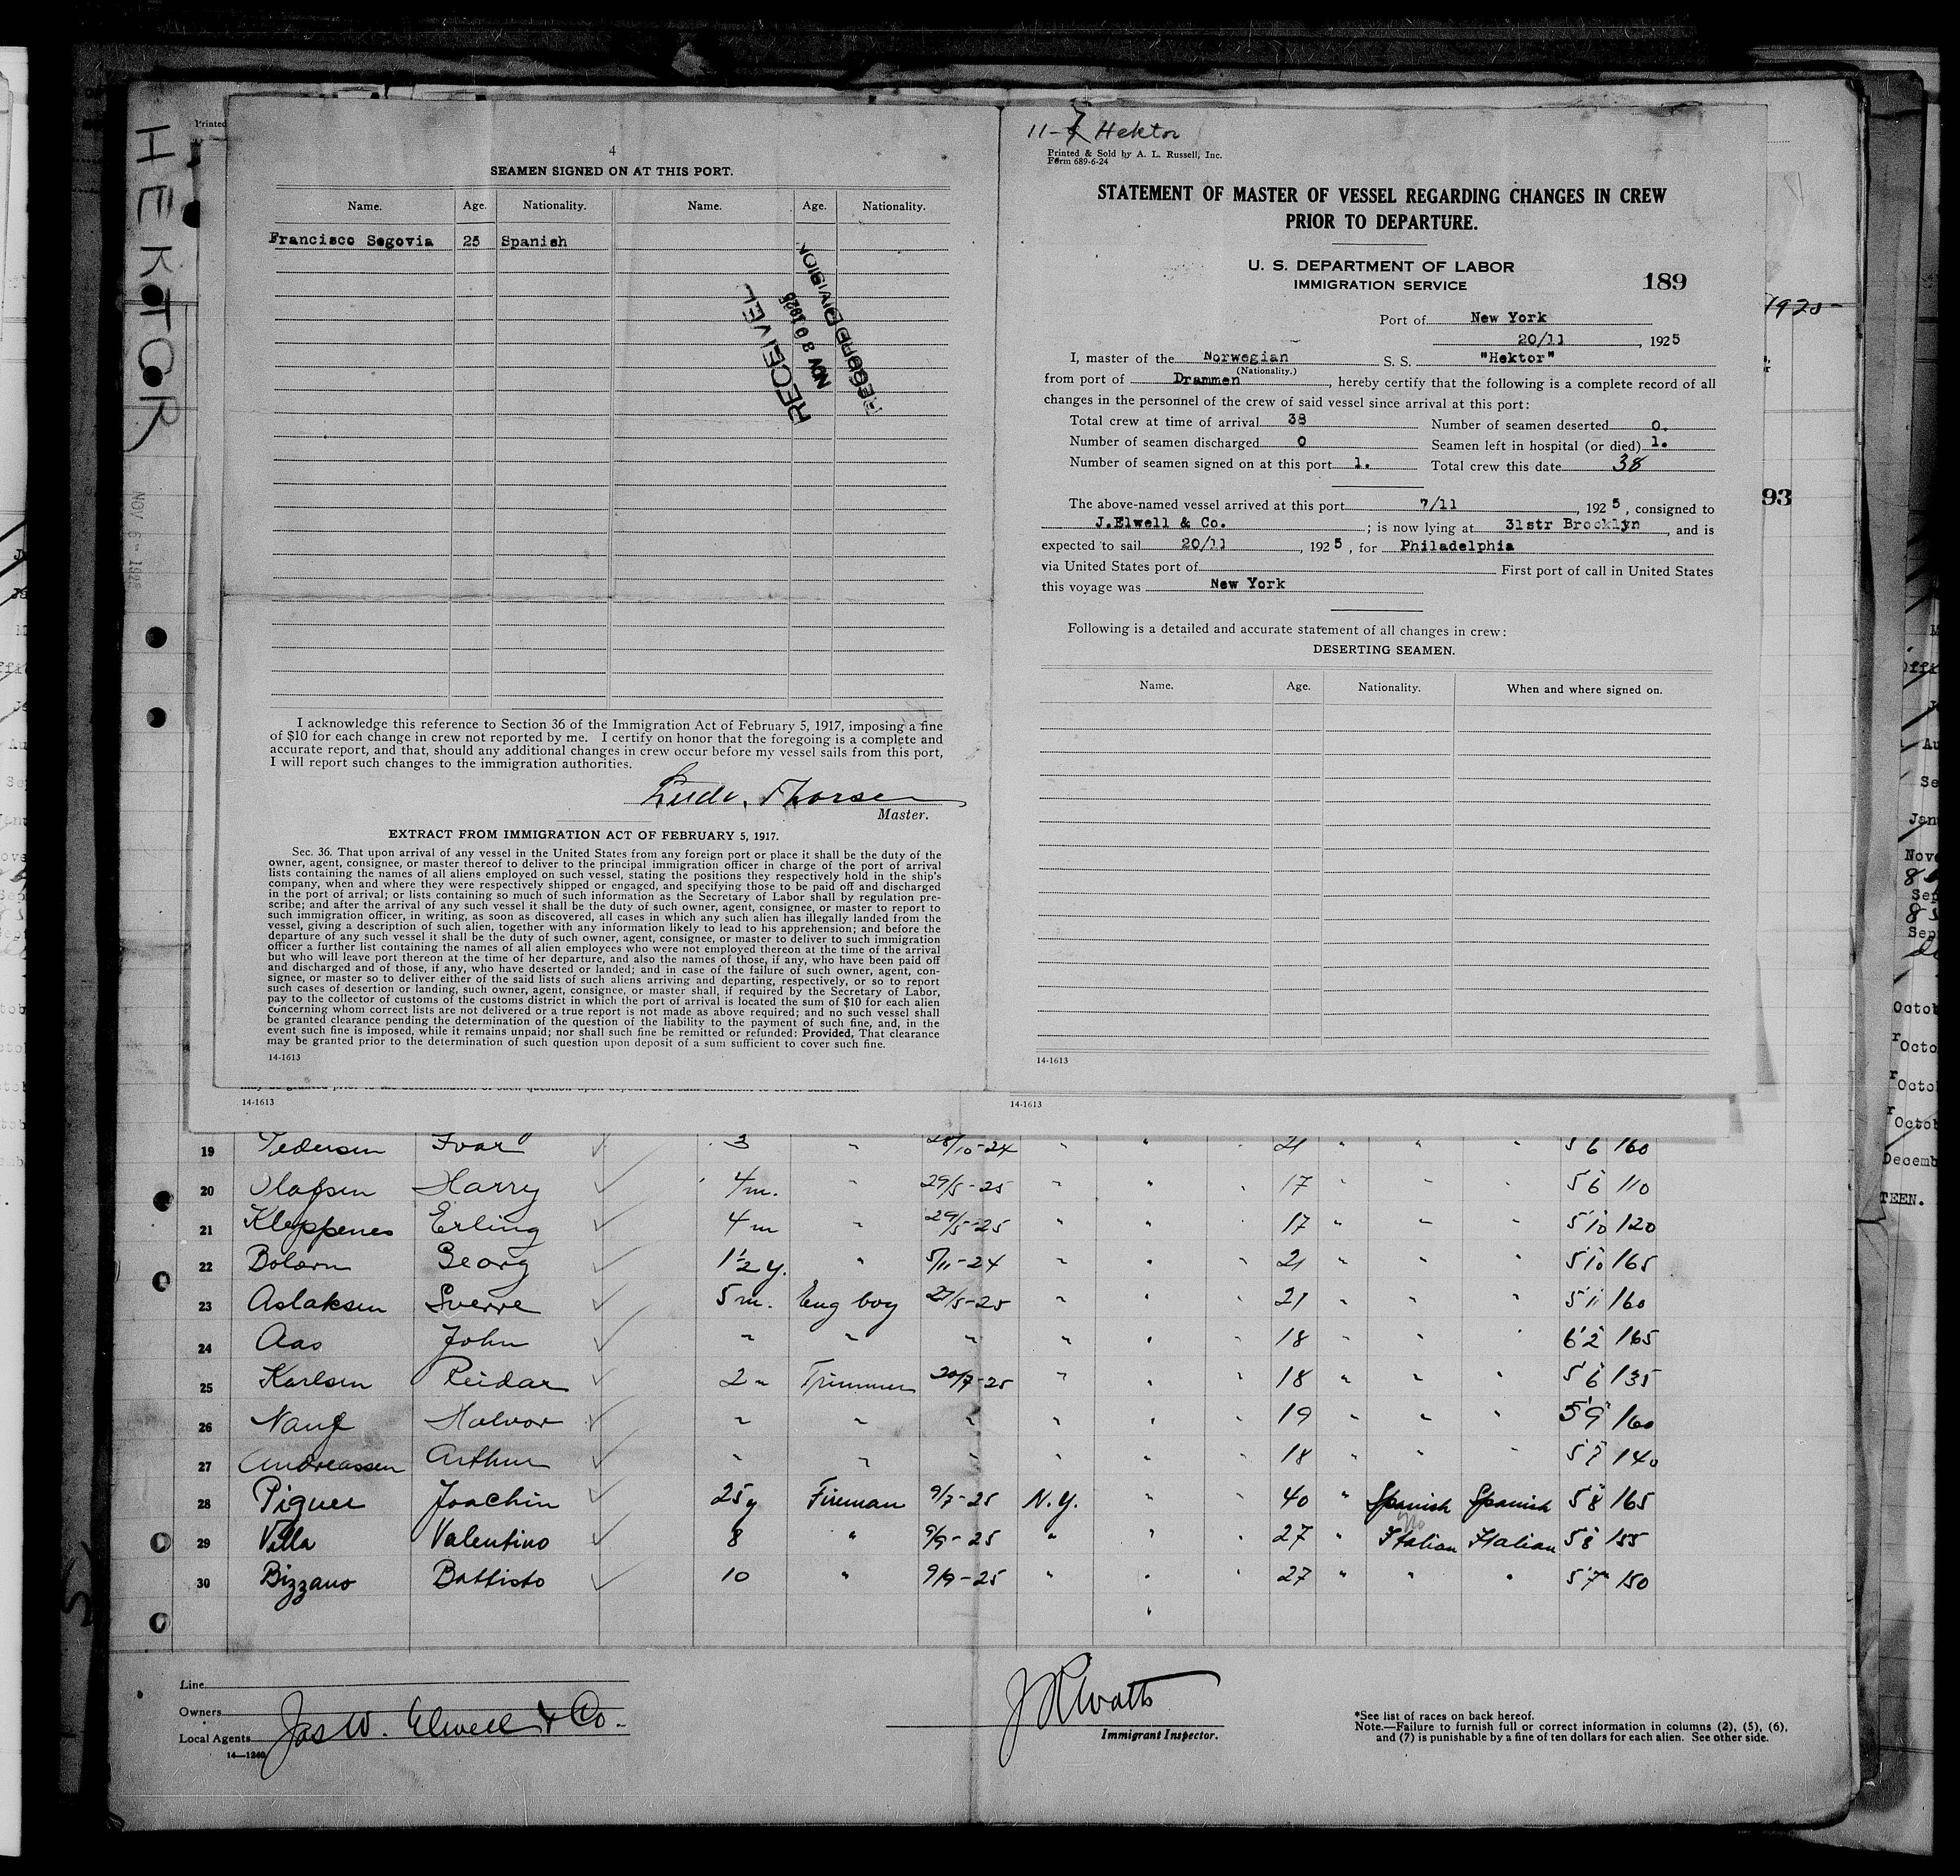 HEKTOR
Printed
4
SEAMEN SIGNED ON AT THIS PORT.
Name. Age. Nationality. Name. Age. Nationality.
Francisco Segovia 25 Spanish
RECEIVED
NOV 20 1925
RECORD DIVISION
I acknowledge this reference to Section 36 of the Immigration Act of February 5, 1917, imposing a fine
of $10 for each change in crew not reported by me. I certify on honor that the foregoing is a complete and
accurate report, and that, should any additional changes in crew occur before my vessel sails from this port,
I will report such changes to the immigration authorities.
Thorsen
Master.
EXTRACT FROM IMMIGRATION ACT OF FEBRUARY 5, 1917.
Sec. 36. That upon arrival of any vessel in the United States from any foreign port or place it shall be the duty of the
owner, agent, consignee, or master thereof to deliver to the principal immigration officer in charge of the port of arrival
lists containing the names of all aliens employed on such vessel, stating the positions they respectively hold in the ship's
company, when and where they were respectively shipped or engaged, and specifying those to be paid off and discharged
in the port of arrival; or lists containing so much of such information as the Secretary of Labor shall by regulation pre-
scribe; and after the arrival of any such vessel it shall be the duty of such owner, agent, consignee, or master to report to
such immigration officer, in writing, as soon as discovered, all cases in which any such alien has illegally landed from the
vessel, giving a description of such alien, together with any information likely to lead to his apprehension; and before the
departure of any such vessel it shall be the duty of such owner, agent, consignee, or master to deliver to such immigration
officer a further list containing the names of all alien employees who were not employed thereon at the time of the arrival
but who will leave port thereon at the time of her departure, and also the names of those, if any, who have been paid off
and discharged and of those, if any, who have deserted or landed; and in case of the failure of such owner, agent, con-
signee, or master so to deliver either of the said lists of such aliens arriving and departing, respectively, or so to report
such cases of desertion or landing, such owner, agent, consignee, or master shall, if required by the Secretary of Labor,
pay to the collector of customs of the customs district in which the port of arrival is located the sum of $10 for each alien
concerning whom correct lists are not delivered or a true report is not made as above required; and no such vessel shall
be granted clearance pending the determination of the question of the liability to the payment of such fine, and, in the
event such fine is imposed, while it remains unpaid; nor shall such fine be remitted or refunded: Provided, That clearance
may be granted prior to the determination of such question upon deposit of a sum sufficient to cover such fine.
14-1613
11-7 Hektor
Printed & Sold by A. L. Russell, Inc.
Form 689-6-24
STATEMENT OF MASTER OF VESSEL REGARDING CHANGES IN CREW
PRIOR TO DEPARTURE.
U. S. DEPARTMENT OF LABOR
IMMIGRATION SERVICE
189
Port of New York
20/11, 1925
I, master of the Norwegian S. S. "Hektor"
(Nationality.)
from port of Drammen, hereby certify that the following is a complete record of all
changes in the personnel of the crew of said vessel since arrival at this port:
Total crew at time of arrival 38 Number of seamen deserted 0.
Number of seamen discharged 0 Seamen left in hospital (or died) 1.
Number of seamen signed on at this port 1. Total crew this date 38
The above-named vessel arrived at this port 7/11, 1925, consigned to
J.Elwell & Co.; is now lying at 31str Brooklyn, and is
expected to sail 20/11, 1925, for Philadelphia
via United States port of First port of call in United States
this voyage was New York
Following is a detailed and accurate statement of all changes in crew:
DESERTING SEAMEN.
Name. Age. Nationality. When and where signed on.
14-1613
1925
93
NOV 6 - 1925
14-1613 14-1613
19 Pedersen Ivar 3 " 28/10-24 " " " 21 " " " 5 6 160
20 Olafsen Harry 4m. " 29/5-25 " " " 17 " " " 5 6 110
21 Kleppenes Erling 4m " 29/5-25 " " " 17 " " " 5 10 120
22 Bolærn Georg 1½ y. " 5/11-24 " " " 21 " " " 5 10 165
23 Aslaksen Sverre 5m. Eng boy 27/5-25 " " " 21 " " " 5 11 160
24 Aas John " " " " " " 18 " " " 6 2 165
25 Karlsen Reidar 2 " Trimmer 20/7-25 " " " 18 " " " 5 6 135
26 Halvor " " " " " " 19 " " " 5 9 160
27 Andreassen Arthur " " " " " " 18 " " " 5 7 140
28 Piquer Joachin 25y Fireman 9/7-25 N.Y. " " 40 " Spanish Spanish 5 8 165
29 Villa Valentino 8 " 9/9-25 " " " 27 " Italian Italian 5 8 155
30 Bizzano Battisto 10 " 9/9-25 " " " 27 " " " 5 7 150
Line
Owners
Local Agents Jas W. Elwell & Co.
14-1240
J R Watts
Immigrant Inspector.
*See list of races on back hereof.
Note.—Failure to furnish full or correct information in columns (2), (5), (6),
and (7) is punishable by a fine of ten dollars for each alien. See other side.